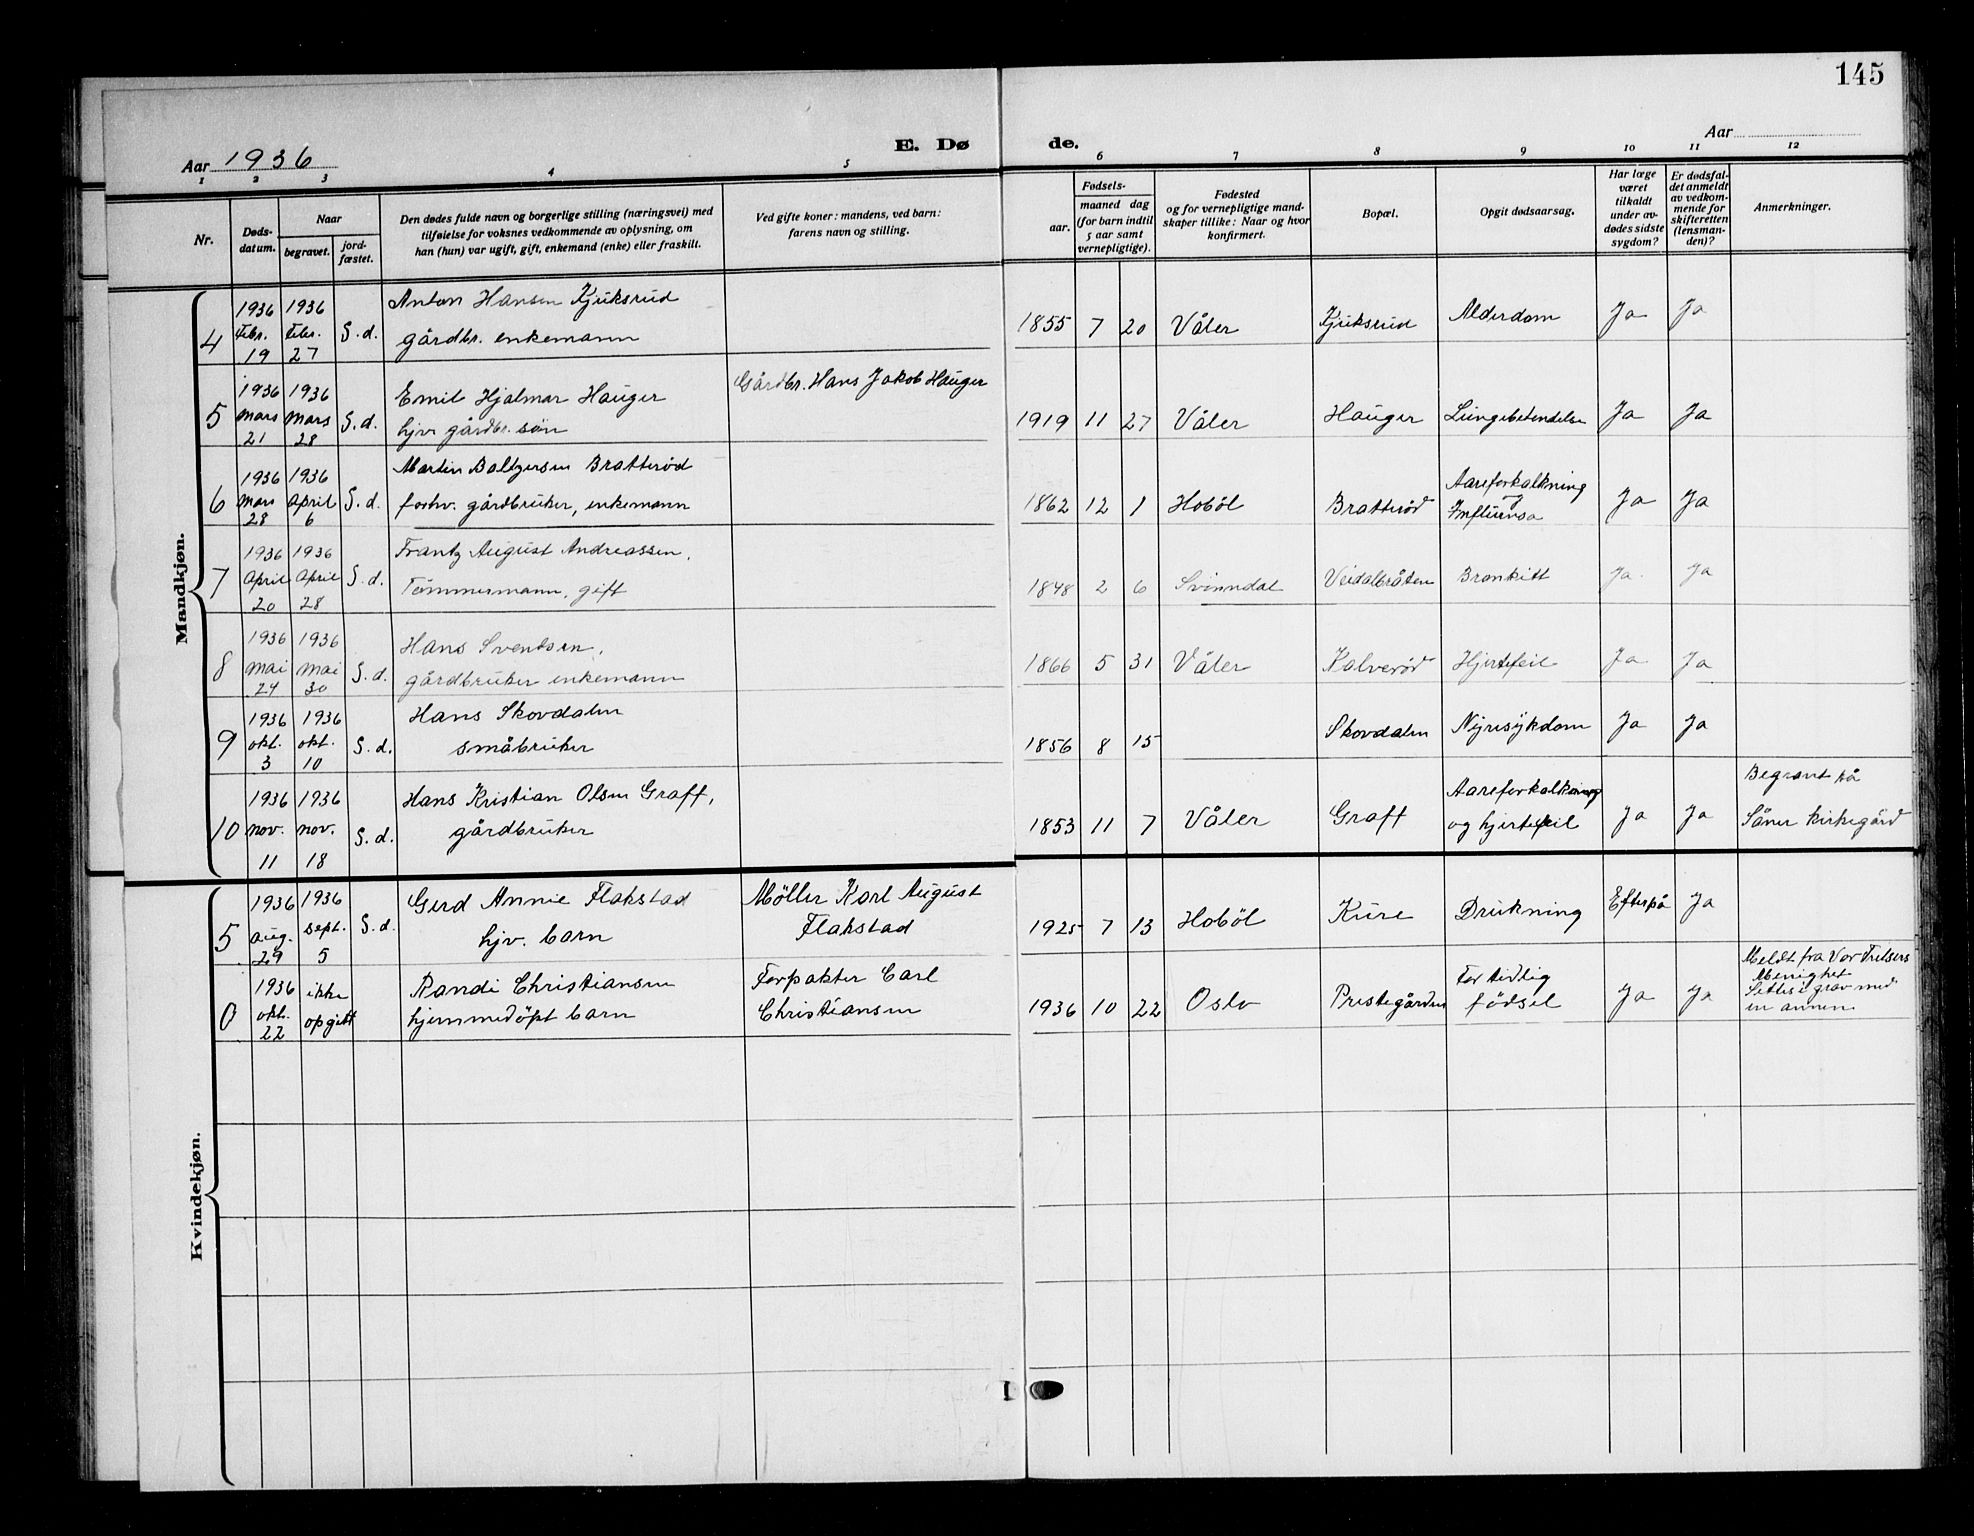 145
E. Dø
de.
Aar 1936
Aar
1 2 3 4 5 6 7 8 9 10 11 12
Nr.
Døds-
datum.
Naar
begravet.
jord-
fæstet.
Den dødes fulde navn og borgerlige stilling (næringsvei) med
tilføielse for voksnes vedkommende av oplysning, om
han (hun) var ugift, gift, enkemand (enke) eller fraskilt.
Ved gifte koner: mandens, ved barn:
farens navn og stilling.
Fødsels-
aar.
maaned dag
(for barn indtil
5 aar samt
vernepligtige).
Fødested
og for vernepligtige mand-
skaper tillike: Naar og hvor
konfirmert.
Bopæl.
Opgit dødsaarsag.
Har læge
været
tilkaldt
under av-
dødes sidste
sygdom?
Er dødsfal-
det anmeldt
av vedkom-
mende for
skifteretten
(lensman-
den)?
Anmerkninger.
Mandkjøn.
4
1936
Febr.
19
1936
Febr.
27
S. d.
Anton Hansen Kjuksrud
gårdbr. enkemann
1855 7 20 Våler Kjuksrud Alderdom Ja Ja
5
1936
Mars
21
1936
Mars
28
S. d.
Emil Hjalmar Hauger
hjv. gårdbr. sön
Gårdbr. Hans Jakob Hauger
1919 11 27 Våler Hauger Lungebetendelse Ja Ja
6
1936
Mars
28
1936
April
6
S. d.
Martin Baltzersen Bratteröd
forhv. gårdbruker, enkemann
1862 12 1 Hoböl Bratteröd
Aareforkalkning
og
Influensa
Ja Ja
7
1936
April
20
1936
April
28
S. d.
Frantz August Andreassen,
Tömmermann, gift
1848 2 6 Svinndal Veidalbråten Bronkitt Ja. Ja
8
1936
Mai
24
1936
Mai
30
S. d.
Hans Svendsen,
gårdbruker enkemann
1866 5 31 Våler Kalveröd Hjertefeil Ja Ja
9
1936
okt.
3
1936
okt.
10
S. d.
Hans Skovdalen
småbruker
1856 8 15 Skovdalen Nyresykdom Ja Ja
10
1936
nov.
11
1936
nov.
18
S. d.
Hans Kristian Olsen Graff,
gårdbruker
1853 11 7 Våler Graff
Aareforkalkning
og hjertefeil
Ja Ja
Begravt på
Såner kirkegård
Kvindekjøn.
5
1936
aug.
29
1936
sept.
5
S. d.
Gerd Annie Flakstad
hjv. barn
Möller Karl August
Flakstad
1925 7 13 Hoböl Kure Drukning Efterpå Ja
0
1936
okt.
22
ikke
opgitt
Randi Christiansen
hjemmedöpt barn
Forpakter Carl
Christiansen
1936 10 22 Oslo Prestegården
For tidlig
födsel
Ja Ja
Meldt fra Vor Frelsers
Menighet
grav med
en annen.